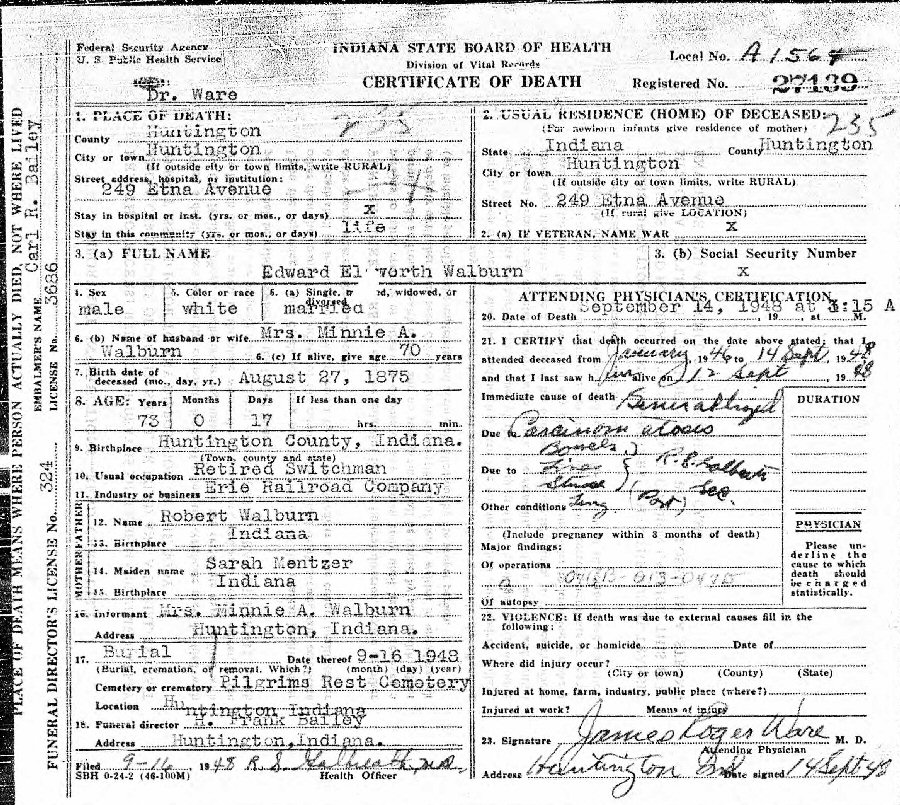 Federal Security Agency
U. S. Public Health Service
INDIANA STATE BOARD OF HEALTH
Division of Vital Records
CERTIFICATE OF DEATH
Local No. A 1564
Registered No. 27139
Dr. Ware
1. PLACE OF DEATH:
County Huntington
235
City or town Huntington
(If outside city or town limits, write RURAL)
Street address, hospital, or institution:
249 Etna Avenue
Stay in hospital or inst. (yrs. or mos., or days) X
Stay in this community (yrs. or mos., or days) life
2. USUAL RESIDENCE (HOME) OF DECEASED:
(For newborn infants give residence of mother) 235
State Indiana County Huntington
City or town Huntington
(If outside city or town limits, write RURAL)
Street No. 249 Etna Avenue
(If rural give LOCATION)
2. (a) IF VETERAN, NAME WAR X
3. (a) FULL NAME
Edward El worth Walburn
3. (b) Social Security Number
X
4. Sex
male
5. Color or race
white
6. (a) Single, d, widowed, or
divorced
married
6. (b) Name of husband or wife Mrs. Minnie A.
Walburn 6. (c) If alive, give age 70 years
7. Birth date of
deceased (mo., day, yr.) August 27, 1875
8. AGE: Years Months Days If less than one day
73 0 17 hrs. min.
9. Birthplace Huntington County, Indiana.
(Town, county and state)
10. Usual occupation Retired Switchman
11. Industry or business Erie Railroad Company
FATHER
12. Name Robert Walburn
13. Birthplace Indiana
MOTHER
14. Maiden name Sarah Mentzer
15. Birthplace Indiana
16. Informant Mrs. Minnie A. Walburn
Address Huntington, Indiana.
17. Burial Date thereof 9-16 1948
(Burial, cremation, or removal. Which?) (month) (day) (year)
Cemetery or crematory Pilgrims Rest Cemetery
Location Huntington Indiana
18. Funeral director H. Frank Bailey
Address Huntington, Indiana.
Filed 9-16 1948 R. S. Galbreath, M.D.
SBH 0-24-2 (46-100M) Health Officer
ATTENDING PHYSICIAN'S CERTIFICATION
20. Date of Death September 14, 1948 at :15 A M.
21. I CERTIFY that death occurred on the date above stated; that I
attended deceased from January 1946 to 14 Sept, 1948
and that I last saw him alive on 12 Sept, 1948
Immediate cause of death Generalized
Due to Carcinomatosis
Bowels
Due to Liver
R. S. Galbreath
Sec.
Other conditions Lung
(Include pregnancy within 3 months of death)
Major findings:
Of operations
Of autopsy
DURATION
PHYSICIAN
Please un-
derline the
cause to which
death should
be charged
statistically.
22. VIOLENCE: If death was due to external causes fill in the
following:
Accident, suicide, or homicide Date of
Where did injury occur?
(City or town) (County) (State)
Injured at home, farm, industry, public place (where?)
Injured at work? Means of injury
23. Signature James Roger Ware M. D.
Attending Physician
Address Huntington Ind Date signed 14 Sept 48
PLACE OF DEATH MEANS WHERE PERSON ACTUALLY DIED, NOT WHERE LIVED
EMBALMER'S NAME Carl R. Bailey
FUNERAL DIRECTOR'S LICENSE No. 324 LICENSE No. 3686